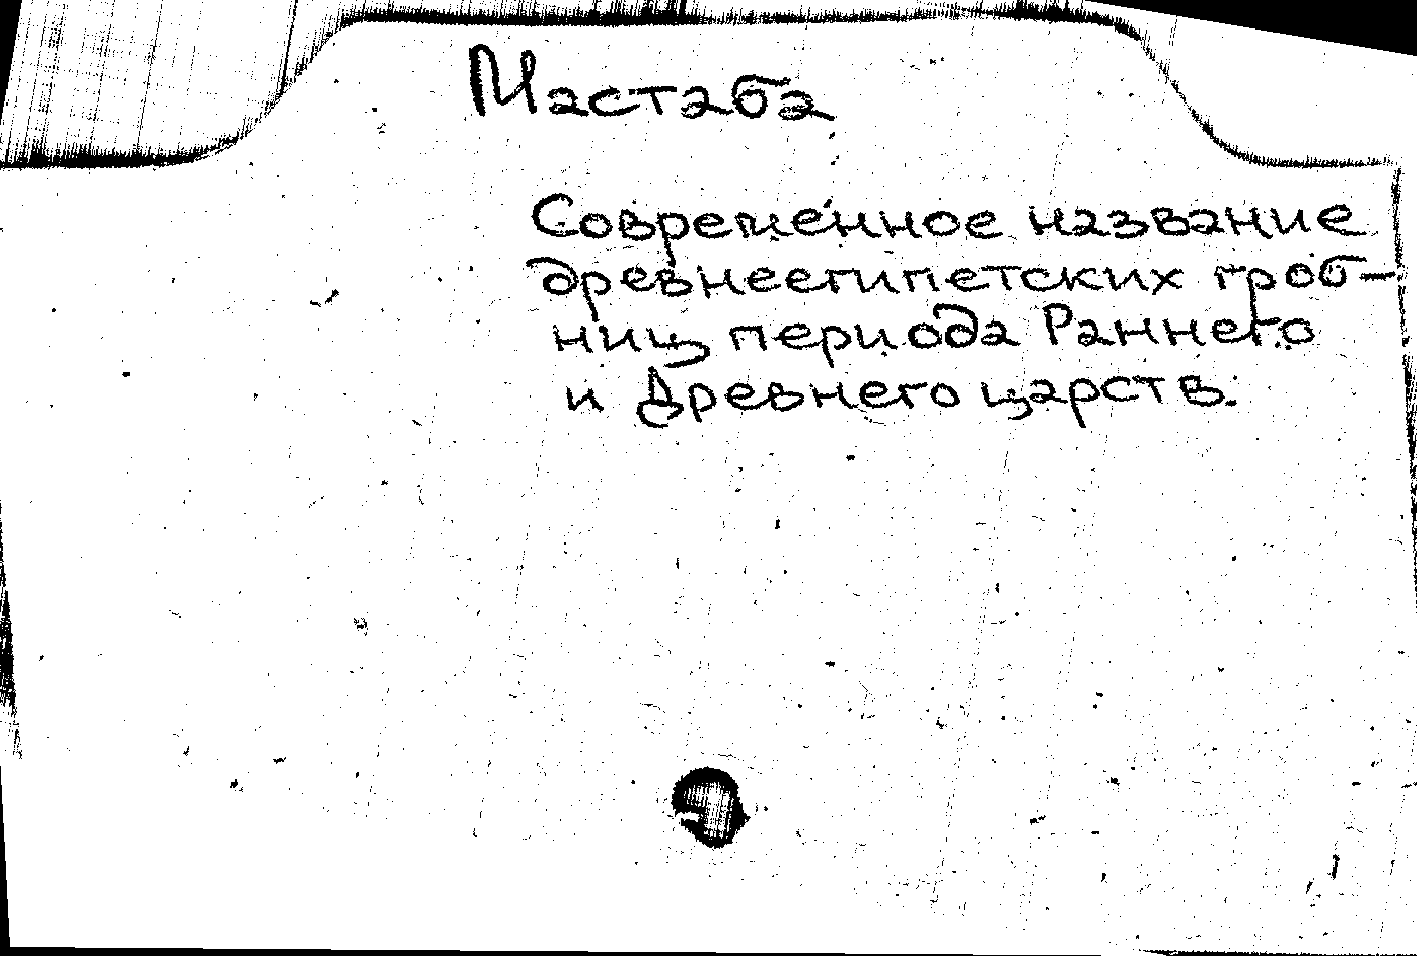 Мастаба
Современное название
древнеегипетских гроб-
ниц периода Раннего
и Древнего царств.